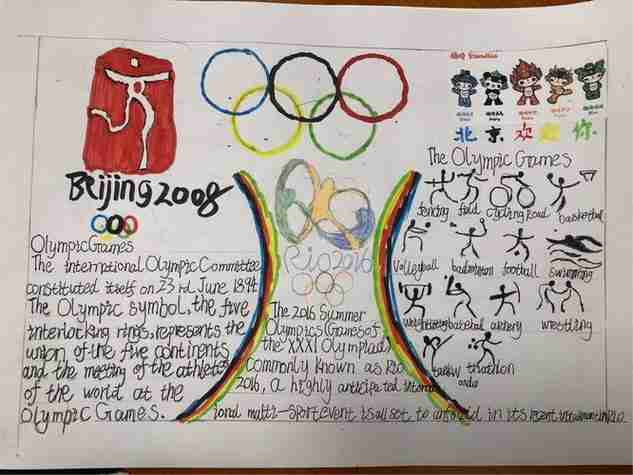 福娃 Friendlies
北京欢迎你
Beijing 2008
Olympic Games
The International Olympic Committee
constituted itself on 23 rd June 1894.
The Olympic symbol, the five
interlocking rings, represents the
union of the five continents
and the meeting of the athletes
of the world at the
Olympic Games.
Rio 2016
The 2016 Summer
Olympics (Games of
the XXXI Olympiad)
commonly known as Rio
2016, a highly anticipated
ional multi-sport event is all set to unfold in its
The Olympic Games
fencing field cycling Road basketball
volleyball badminton football swimming
archery wrestling
triathlon